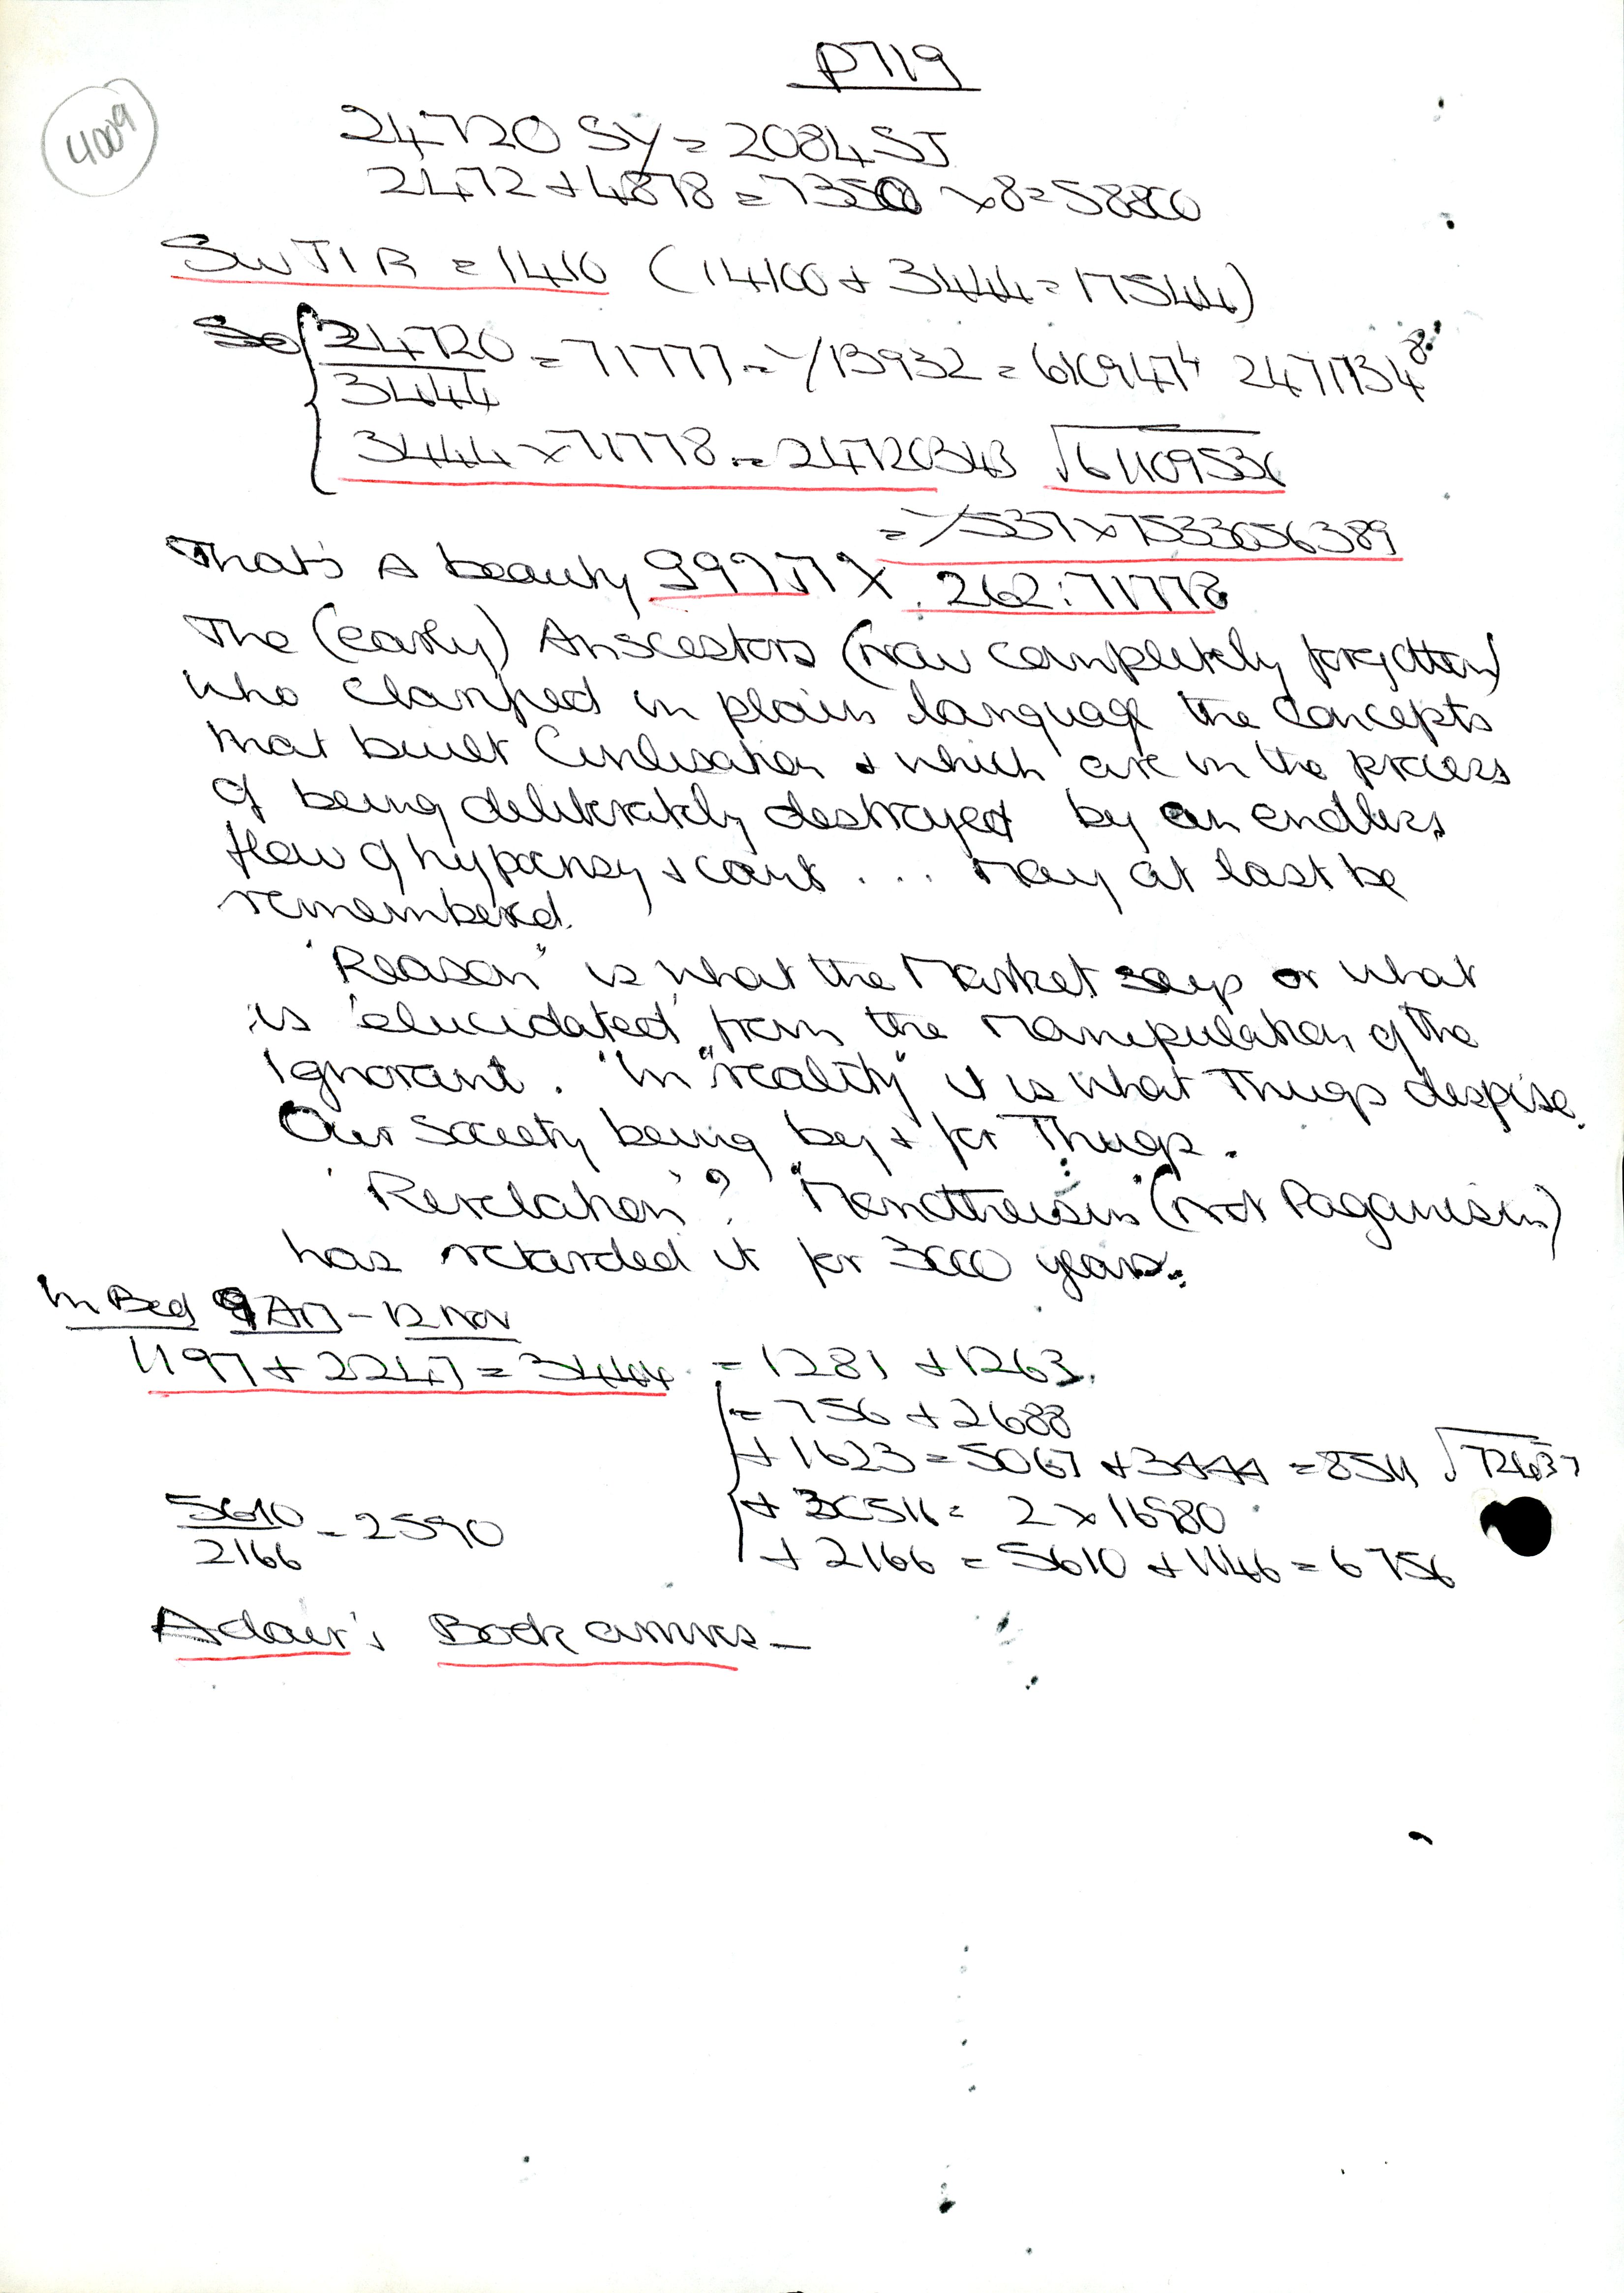 P719
4009
24720 SY = 2084 SJ
2472 + 4878 = 7350 x8 = 58800
SWJIR = 1410 (14100 + 3444 = 17544)
24720
3444
= 71777
3444 x 71778 = 24720343
That's A beauty
262:71778
The (early) Anscestors (now completely forgotten)
who clarified in plain language the concepts
that built Civilisation & which are in the process
of being deliberately destroyed by an endless
flow of hypocrisy & cant ... May at last be
remembered.
'Reason' is what the Market says or what
is 'elucidated' from the manipulation of the
Ignorant. "In "reality" it is what Thugs despise.
Our Society being by & for Thugs.
'Revelation'? "Monotheism" (not Paganism)
has retarded it for 3000 years.
In Bed 9 AM - 12 Nov
1197 + 2247 = 3444 = 1281 + 1263
= 756 + 2688
+ 1623 = 5067 + 3444 = 8511
5610
2166
= 2590
+ 2166 = 5610 + 1146 = 6756
Adair's Book arrives -